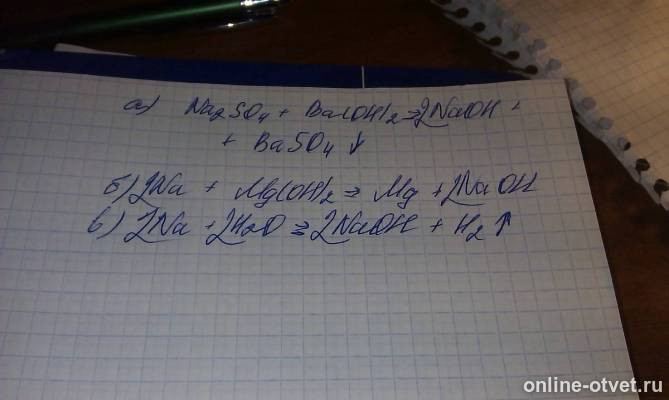 а) Na2SO4 + Ba(OH)2 ⇒ 2NaOH +
+ BaSO4 ↓
б) 2Na + Mg(OH)2 ⇒ Mg + 2NaOH
в) 2Na + 2H2O ⇒ 2NaOH + H2 ↑
online-otvet.ru